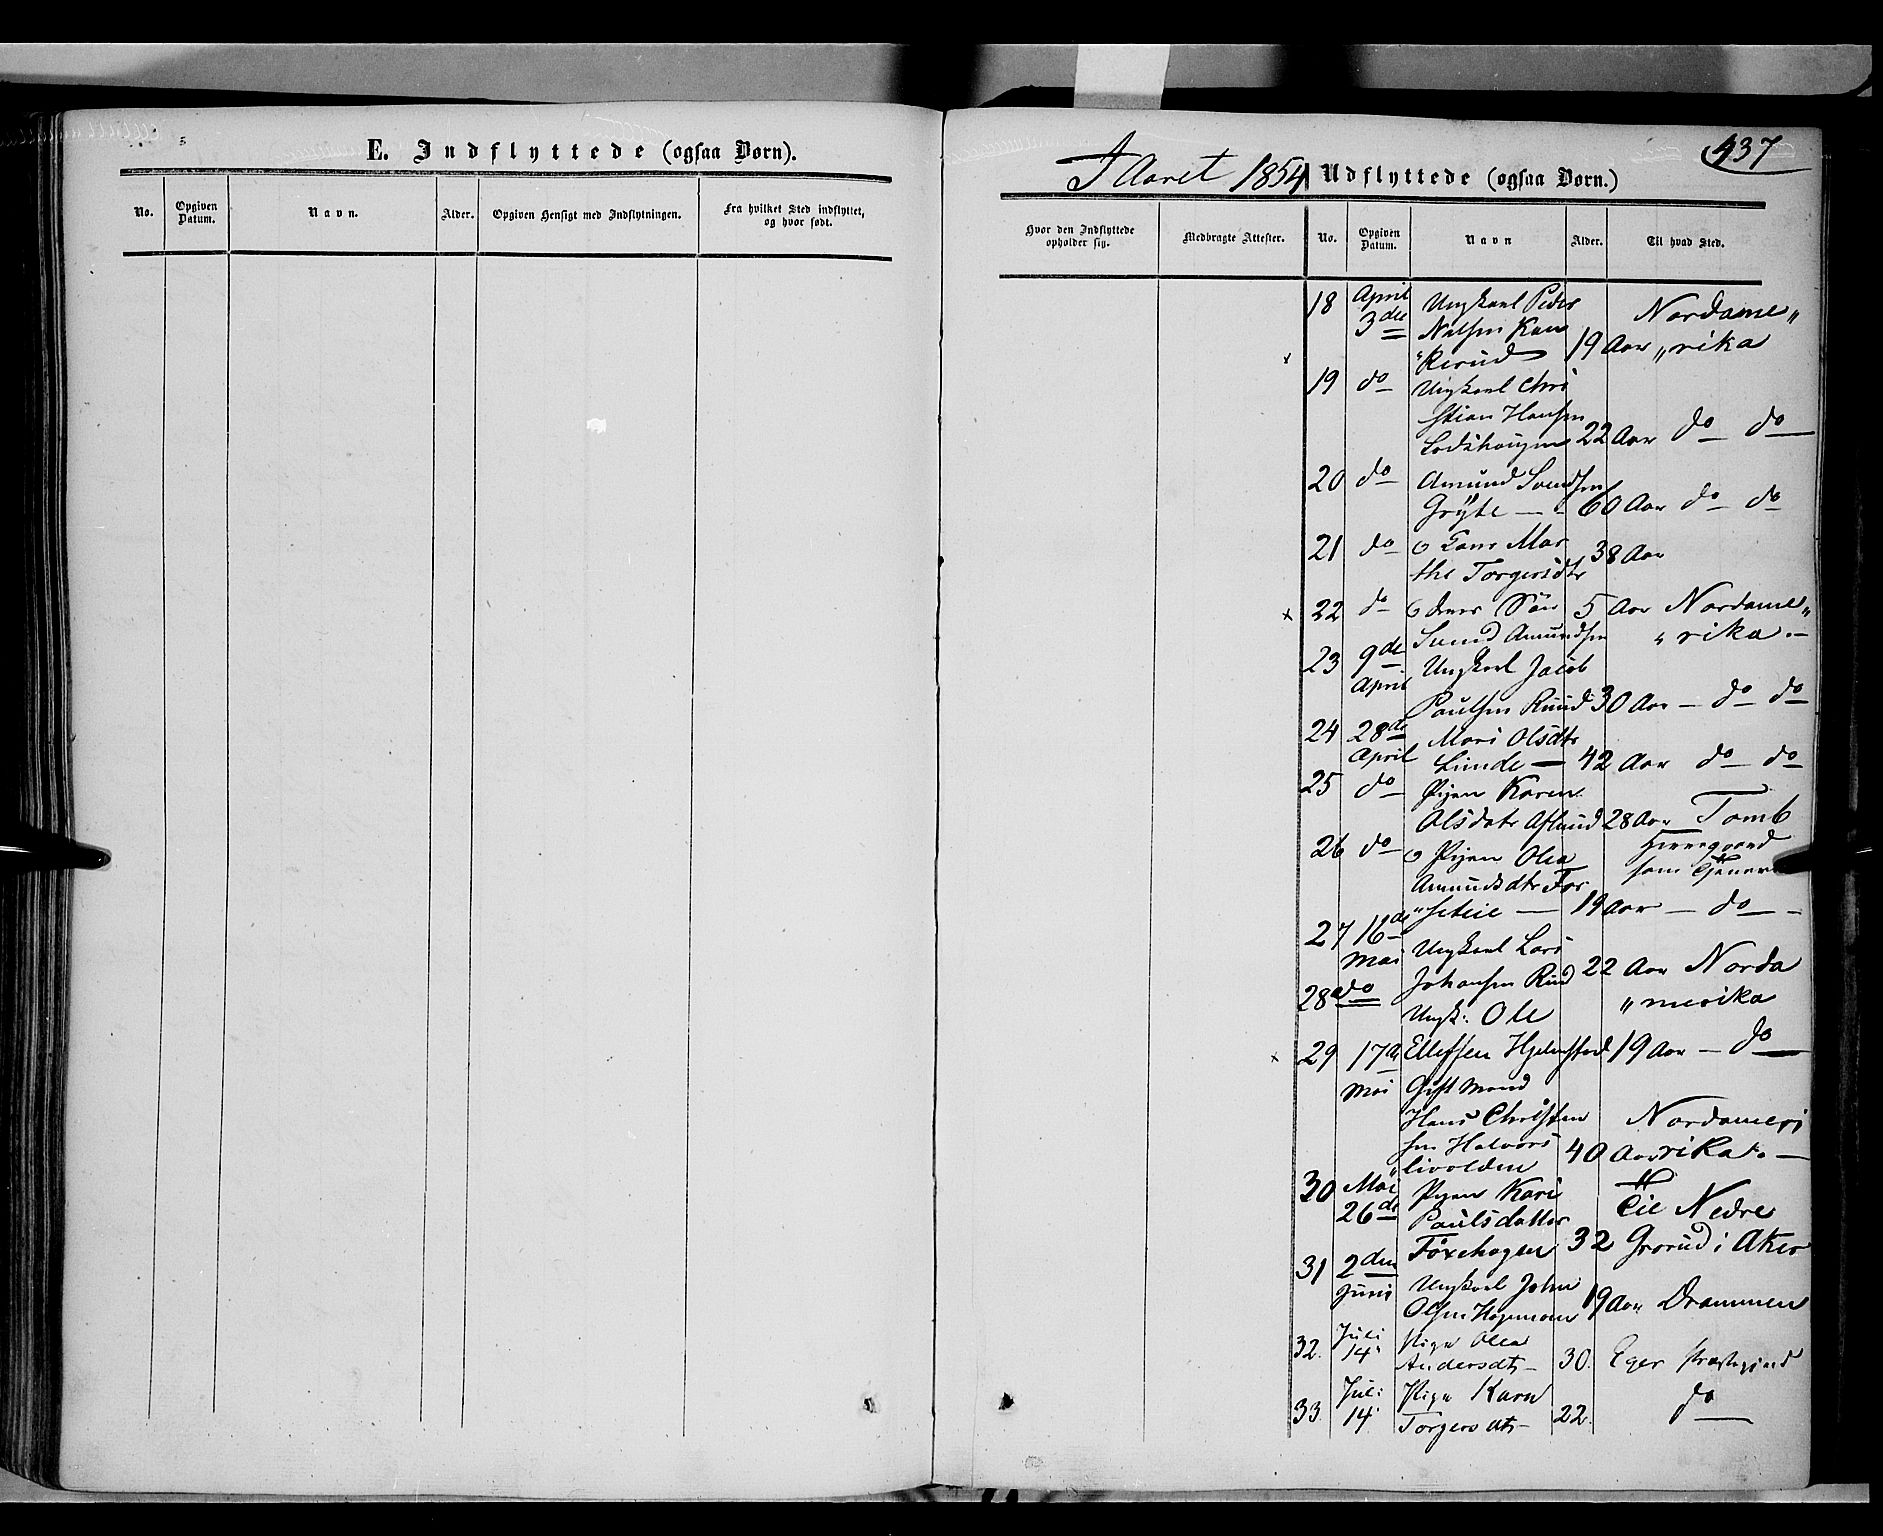 E. Indflyttede (ogsaa Børn).
No.
Opgiven Datum.
Navn.
Alder.
Opgiven Hensigt med Indflytningen.
Fra hvilket Sted indflyttet, og hvor født.
437
I Aaret 1854 Udflyttede (ogsaa Børn.)
Hvor den Indflyttede opholder sig.
Medbragte Attester.
No.
Opgiven Datum.
Navn
Alder.
Til hvad Sted.
18 April Ungkarl Peder Nordame„
3die Nilsen Kan
„kerud 19 Aar „rika
19 do Ungkarl Chri
stian Hansen
Lodshaugen 22 Aar do do
20 do Amund Svendsen
Gryte 60 Aar do do
21 do Mar 38 Aar
the Torgersdtr
22 do deres Søn 5 Aar Nordame„
Svend Amundsen „rika.
23 9de Ungkarl Jacob
April Paulsen Ruud 30 Aar do do
24 28de Mari Olsdtr
April Lunde 42 Aar do do
25 do Pigen Karen
Olsdatr Aslund 28 Aar Tomb
26 do Pigen Olea Herregaard
Amundsdtr For som Tjener
„seteie 19 Aar do
27 16de Ungkarl Lars
Mai Johansen Rud 22 Aar Norda
28 do Ungk: Ole „merika
29 17de Ellefsen Hjelmstad 19 Aar do
Mai Gift Mand
Hans Christen Nordameri
sen Halvors 40 Aar rika.
„livolden
30 Mai Pigen Kari Til Nedre
26de Paulsdatter
Foxehagen 32 Grorud i Aker
31 2den Ungkarl John
Juni Olsen Hagemoen 19 Aar Drammen
32. Juli Pige Olea
14 Andersdtr 30. Eger Præstegjeld
33. Juli Pige Karn
14 Torgersdtr 22. do